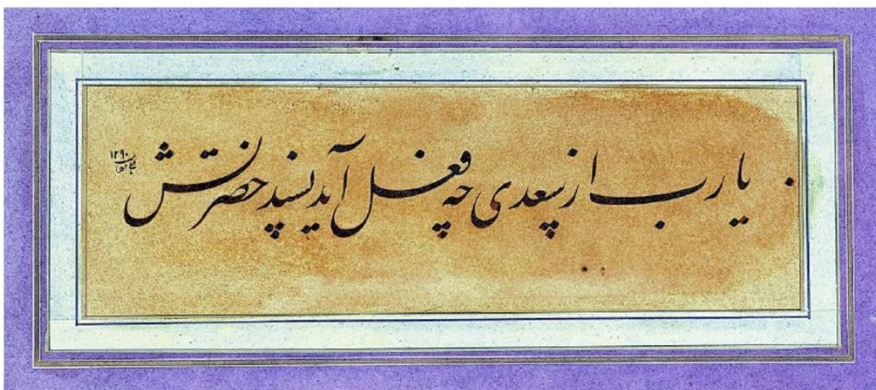 یا رب از سعدی چه فعل آید پسند حضرتش
۱۲۹۰